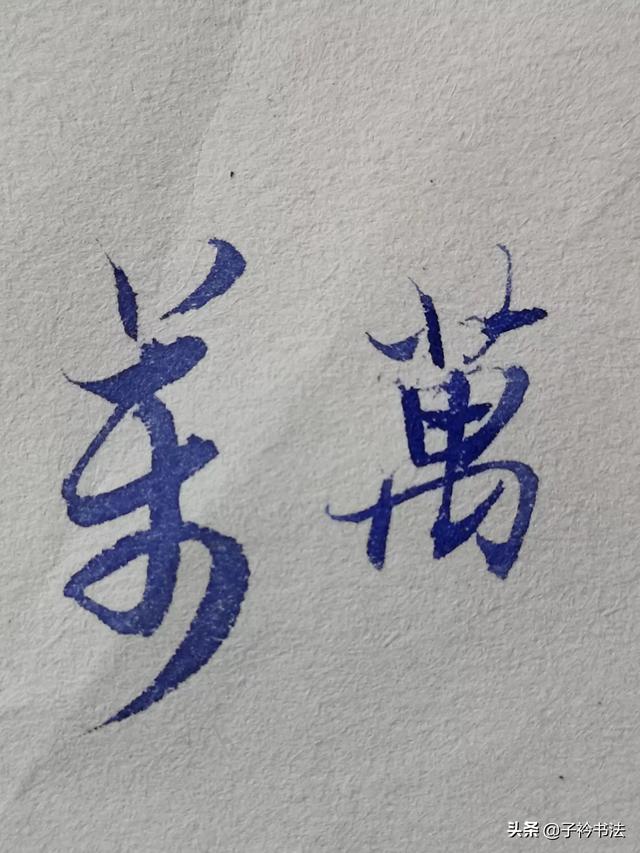 萬 萬
头条 @子衿书法